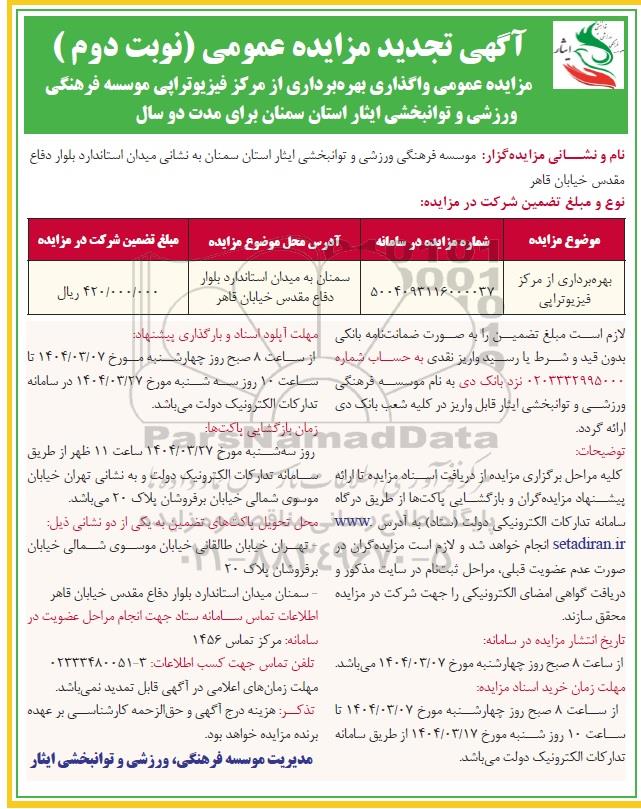 ایثار
آگهی تجدید مزایده عمومی (نوبت دوم )
مزایده عمومی واگذاری بهره‌برداری از مرکز فیزیوتراپی موسسه فرهنگی
ورزشی و توانبخشی ایثار استان سمنان برای مدت دو سال
نام و نشانی مزایده‌گزار: موسسه فرهنگی ورزشی و توانبخشی ایثار استان سمنان به نشانی میدان استاندارد بلوار دفاع
مقدس خیابان قاهر
نوع و مبلغ تضمین شرکت در مزایده:
موضوع مزایده
شماره مزایده در سامانه
آدرس محل موضوع مزایده
مبلغ تضمین شرکت در مزایده
بهره‌برداری از مرکز
فیزیوتراپی
۵۰۰۴۰۹۳۱۱۶۰۰۰۰۳۷
سمنان به میدان استاندارد بلوار
دفاع مقدس خیابان قاهر
۴۲۰/۰۰۰/۰۰۰ ریال
لازم است مبلغ تضمین را به صورت ضمانت‌نامه بانکی
بدون قید و شرط یا رسید واریز نقدی به حساب شماره
۰۲۰۳۳۳۲۹۹۵۰۰۰ نزد بانک دی به نام موسسه فرهنگی
ورزشی و توانبخشی ایثار قابل واریز در کلیه شعب بانک دی
ارائه گردد.
توضیحات:
کلیه مراحل برگزاری مزایده از دریافت اسناد مزایده تا ارائه
پیشنهاد مزایده‌گران و بازگشایی پاکت‌ها از طریق درگاه
سامانه تدارکات الکترونیکی دولت (ستاد) به آدرس www.
setadiran.ir انجام خواهد شد و لازم است مزایده‌گران در
صورت عدم عضویت قبلی، مراحل ثبت‌نام در سایت مذکور و
دریافت گواهی امضای الکترونیکی را جهت شرکت در مزایده
محقق سازند.
تاریخ انتشار مزایده در سامانه:
از ساعت ۸ صبح روز چهارشنبه مورخ ۱۴۰۴/۰۳/۰۷ می‌باشد.
مهلت زمان خرید اسناد مزایده:
از ساعت ۸ صبح روز چهارشنبه مورخ ۱۴۰۴/۰۳/۰۷ تا
ساعت ۱۰ روز شنبه مورخ ۱۴۰۴/۰۳/۱۷ از طریق سامانه
تدارکات الکترونیک دولت می‌باشد.
مهلت آپلود اسناد و بارگذاری پیشنهاد:
از ساعت ۸ صبح روز چهارشنبه مورخ ۱۴۰۴/۰۳/۰۷ تا
ساعت ۱۰ روز سه شنبه مورخ ۱۴۰۴/۰۳/۲۷ در سامانه
تدارکات الکترونیک دولت می‌باشد.
زمان بازگشایی پاکت‌ها:
روز سه‌شنبه مورخ ۱۴۰۴/۰۳/۲۷ ساعت ۱۱ ظهر از طریق
سامانه تدارکات الکترونیک دولت و به نشانی تهران خیابان
موسوی شمالی خیابان برفروشان پلاک ۲۰ می‌باشد.
محل تحویل پاکت‌های تضمین به یکی از دو نشانی ذیل:
- تهران خیابان طالقانی خیابان موسوی شمالی خیابان
برفروشان پلاک ۲۰
- سمنان میدان استاندارد بلوار دفاع مقدس خیابان قاهر
اطلاعات تماس سامانه ستاد جهت انجام مراحل عضویت در
سامانه: مرکز تماس ۱۴۵۶
تلفن تماس جهت کسب اطلاعات: ۳-۰۲۳۳۳۴۸۰۰۵۱
مهلت زمان‌های اعلامی در آگهی قابل تمدید نمی‌باشد.
تذکر: هزینه درج آگهی و حق‌الزحمه کارشناسی بر عهده
برنده مزایده خواهد بود.
مدیریت موسسه فرهنگی، ورزشی و توانبخشی ایثار
ParsNamadData
۰۲۱-۸۸۳۴۹۶۷۰-۵